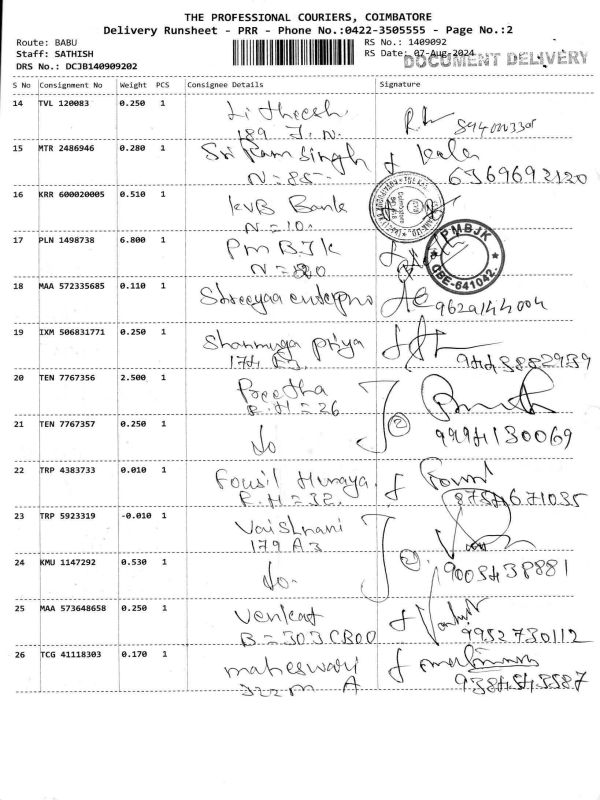 THE PROFESSIONAL COURIERS, COIMBATORE
Delivery Runsheet - PRR - Phone No.:0422-3505555 - Page No.:2
Route: BABU RS No.: 1409092
Staff: SATHISH RS Date: 07-Aug-2024
DOCUMENT DELIVERY
DRS No.: DCJB140909202
S No Consignment No Weight PCS Consignee Details Signature
14 TVL 120083 0.250 1 Litheesh
189 J. N.
15 MTR 2486946 0.280 1 Sri Ram Singh Kala
N = 85 6369692120
16 KRR 600020005 0.510 1 KVB Bank
N = 10
17 PLN 1498738 6.800 1 PM BJK
PMBJK
CBE-641042.
18 MAA 572335685 0.110 1 Shreeyaa 9629144004
19 IXM 506831771 0.250 1 Shanmuga Priya
174 9443882939
20 TEN 7767356 2.500 1 Preetha
R.H = 26
21 TEN 7767357 0.250 1 do 2 9994130069
22 TRP 4383733 0.010 1 Fousil Huraya
R.H = 32. 8754671035
23 TRP 5923319 -0.010 1 Vaishnavi
179 A3
24 KMU 1147292 0.530 1 do. 2 9003438881
25 MAA 573648658 0.250 1 Venkat
B = 303 CBOO 9952730112
26 TCG 41118303 0.170 1 maheswari
322 m A 9384543587